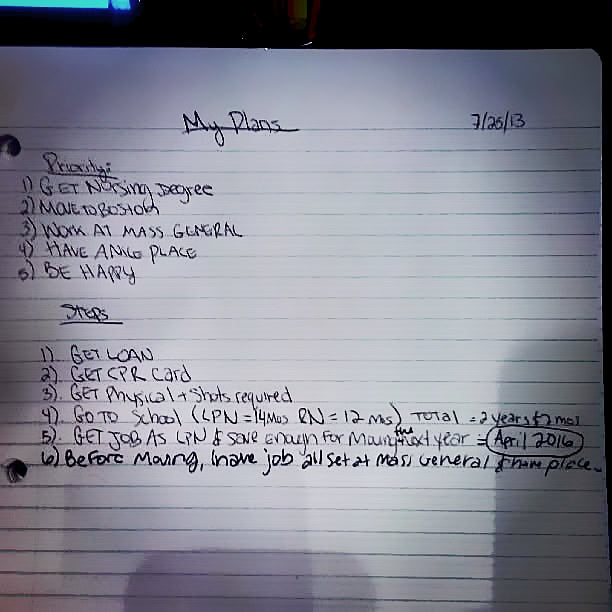 My Plans 7/25/13
Priority:
1) GET Nursing Degree
2) MOVE TO BOSTON
3) WORK AT MASS GENERAL
4) HAVE A NICE PLACE
5) BE HAPPY
STEPS
1). GET LOAN
2). GET CPR Card
3). GET Physical + Shots required
4). GO TO School (LPN = 14 Mos RN = 12 mos) TOTAL = 2 years & 2 mos
5). GET JOB AS LPN & save enough for Moving the next year = April 2016
6) Before Moving, have job all set at Mass General & have place.